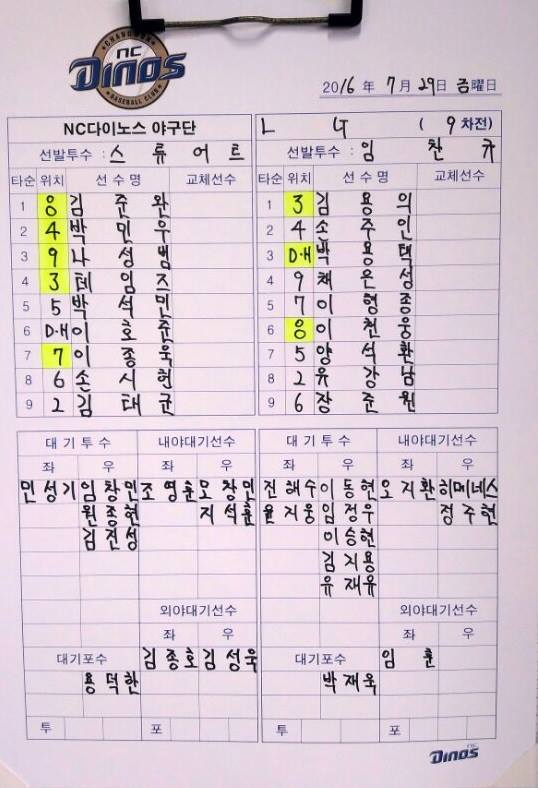 CHANGWON
NC
Dinos
BASEBALL CLUB
2016 年 7 月 29 日 금 曜日
NC다이노스 야구단 L G ( 9 차전)
선발투수 : 스 류 어 트 선발투수 : 임 찬 규
타순 위치 선 수 명 교체선수 타순 위치 선 수 명 교체선수
1 8 김 준 완 1 3 김 용 의
2 4 박 민 우 2 4 손 주 인
3 9 나 성 범 3 D·H 박 용 택
4 3 테 임 즈 4 9 채 은 성
5 5 박 석 민 5 7 이 형 종
6 D·H 이 호 준 6 8 이 천 웅
7 7 이 종 욱 7 5 양 석 환
8 6 손 시 헌 8 2 유 강 남
9 2 김 태 군 9 6 장 준 원
대 기 투 수 내야대기선수 대 기 투 수 내야대기선수
좌 우 좌 우 좌 우 좌 우
민 성 기 임 창 민 조 영 훈 모 창 민 진 해 수 이 동 현 오 지 환 히메네스
원 종 현 지 석 훈 윤 지 웅 임 정 우 정 주 현
김 진 성 이 승 현
김 지 용
유 재 유
외야대기선수 외야대기선수
좌 우 좌 우
대기포수 김 종 호 김 성 욱 대기포수 임 훈
용 덕 한 박 재 욱
투 포 투 포
NC
Dinos